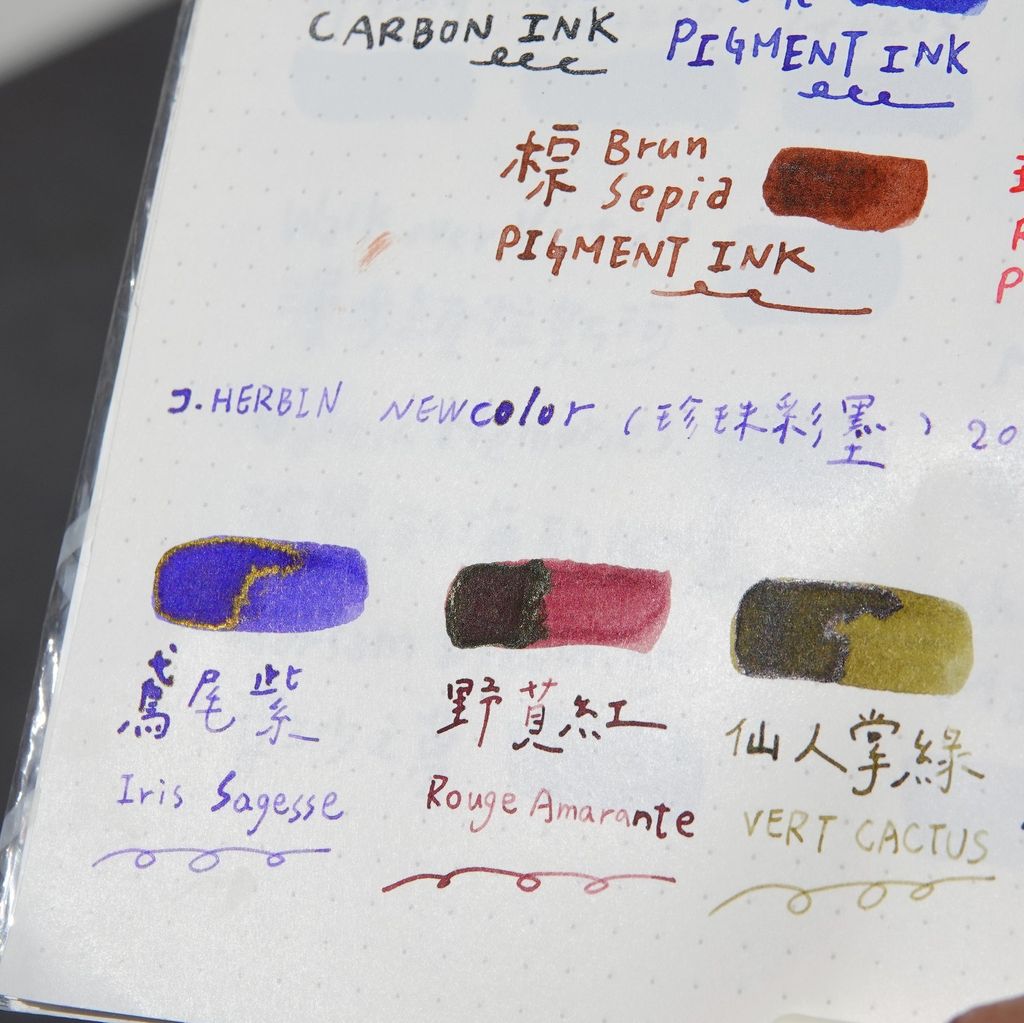 CARBON INK
PIGMENT INK
棕 Brun
Sepia
PIGMENT INK
J.HERBIN NEW color (珍珠彩墨) 20
鳶尾紫
Iris Sagesse
野莧紅
Rouge Amarante
仙人掌綠
VERT CACTUS